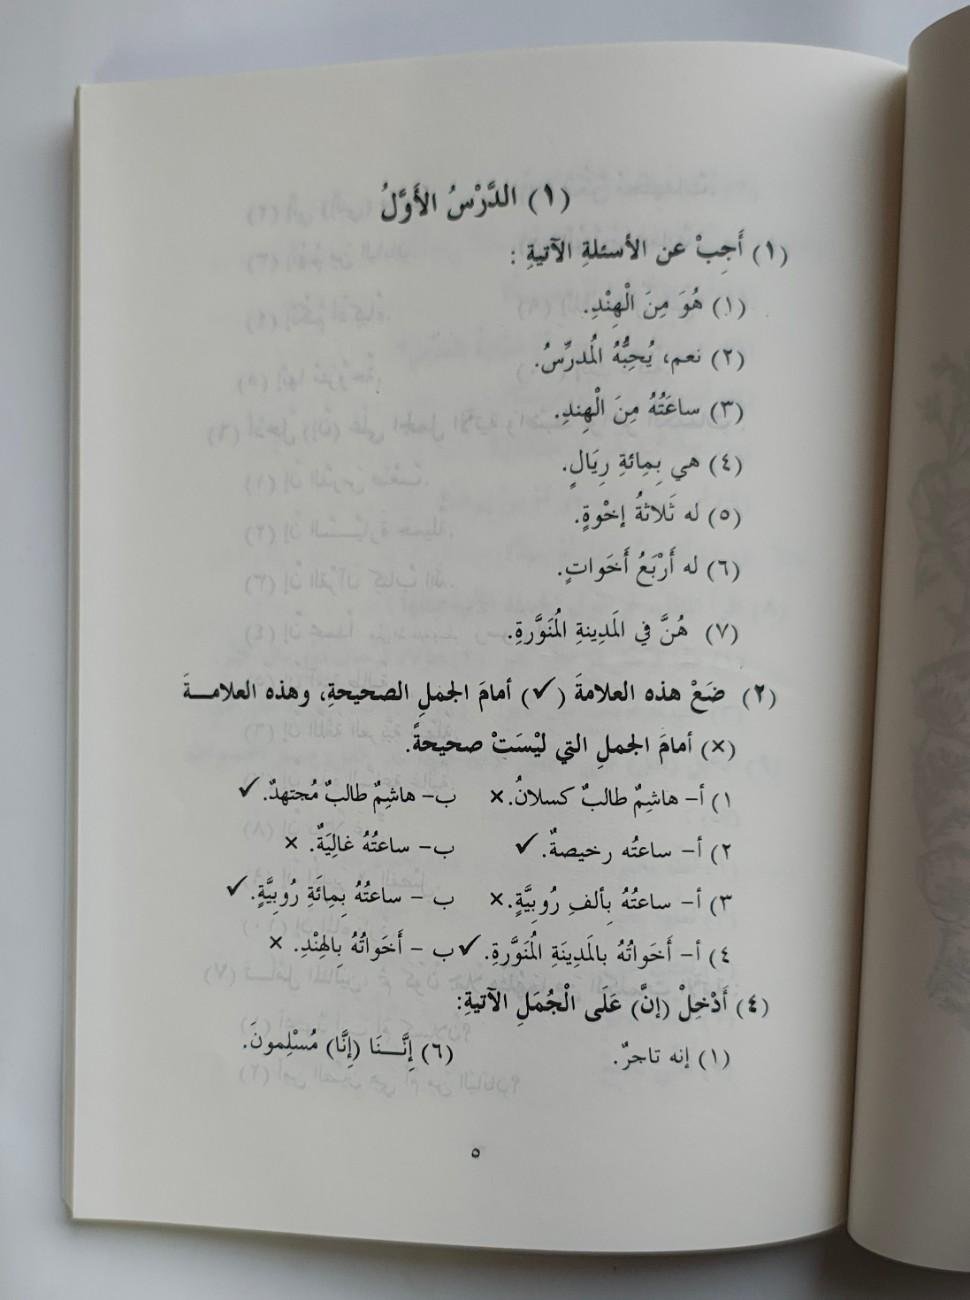 (١) الدَّرْسُ الأَوَّلُ
(١) أَجِبْ عن الأسئلةِ الآتيةِ :
(١) هُوَ مِنَ الْهِنْدِ.
(٢) نعم، يُحِبُّهُ الْمُدرِّسُ.
(٣) ساعَتُهُ مِنَ الْهِندِ.
(٤) هي بِمِائةِ رِيَالٍ.
(٥) له ثَلاثةُ إخْوةٍ.
(٦) له أَرْبَعُ أَخَواتٍ.
(٧) هُنَّ في الْمَدِينةِ الْمُنَوَّرةِ.
(٢) ضَعْ هذه العلامةَ (✓) أمامَ الجملِ الصحيحةِ، وهذه العلامــةَ
(×) أمامَ الجملِ التي لَيْسَتْ صحيحةً.
١) أ- هاشِمٌ طالبٌ كسلانُ.× ب- هاشِمٌ طالبٌ مُجتهدٌ.✓
٢) أ- ساعتُه رخيصةٌ.✓ ب- ساعتُهُ غالِيَةٌ. ×
٣) أ- ساعتُهُ بِألفِ رُوبِيَّةٍ.× ب - ساعتُهُ بِمِائَةِ رُوبِيَّةٍ.✓
٤) أ- أَخَواتُهُ بالْمَدِينَةِ الْمُنَوَّرةِ.✓ ب - أَخَواتُهُ بِالهِنْدِ. ×
(٤) أَدْخِلْ (إنَّ) عَلَى الْجُمَلِ الآتيةِ:
(١) إنه تاجرٌ. (٦) إِنَّـــنَا (إنَّا) مُسْلِمونَ.
٥